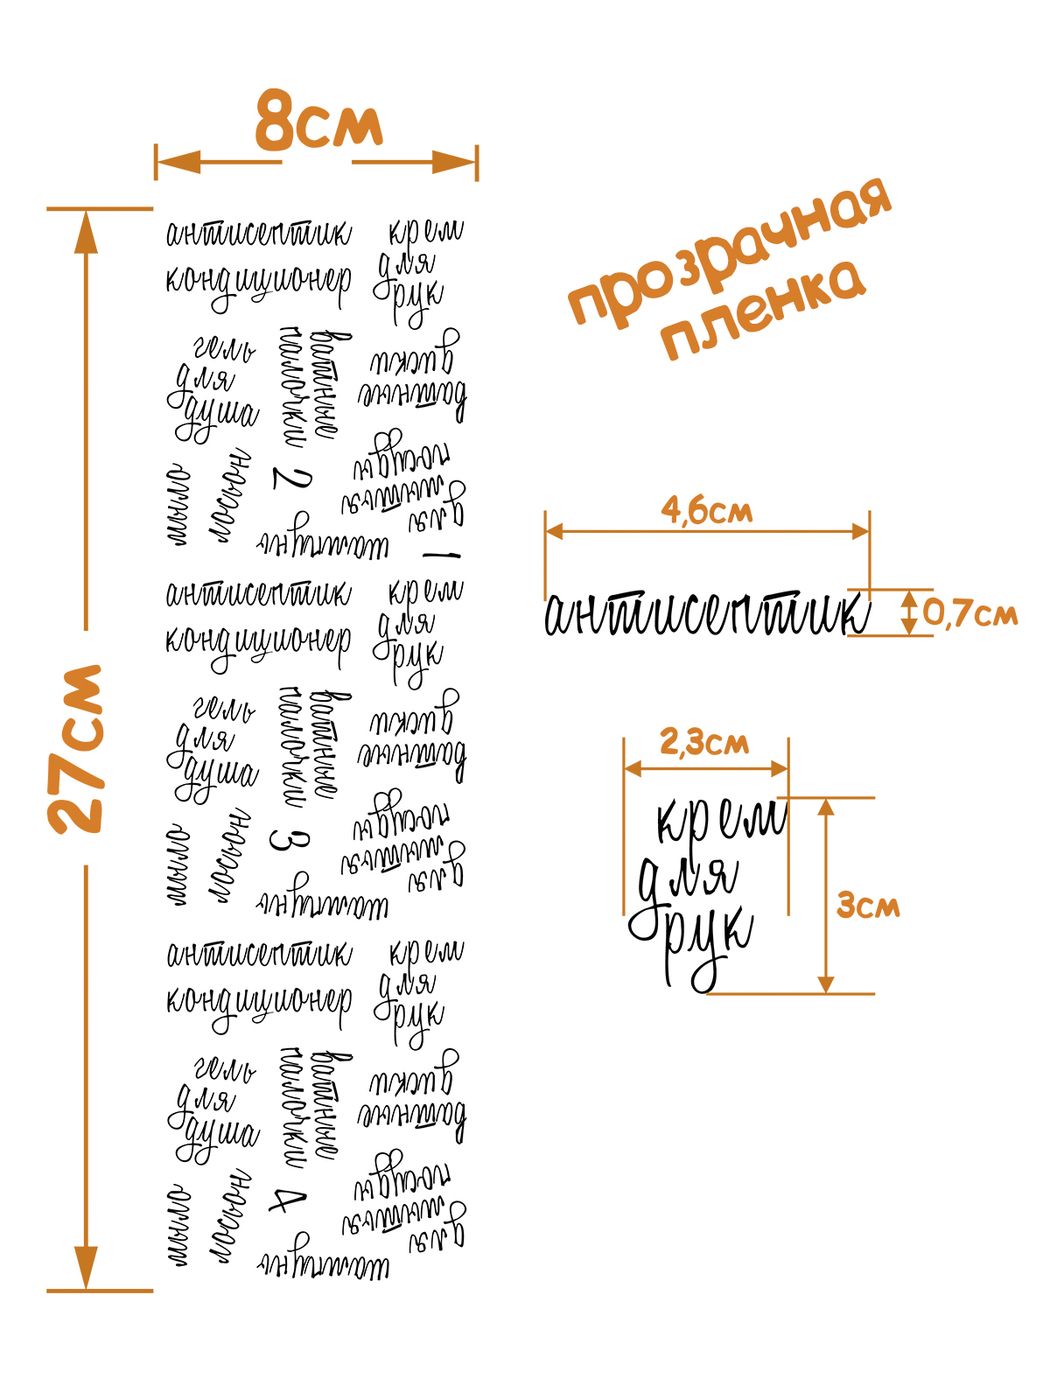 8см
27см
прозрачная
пленка
антисептик
кондиционер
крем
для
рук
гель
для
душа
ватные
палочки
ватные
диски
мыло
лосьон
2
для
мытья
посуды
шампунь
1
антисептик
кондиционер
крем
для
рук
гель
для
душа
ватные
палочки
ватные
диски
мыло
лосьон
3
для
мытья
посуды
шампунь
антисептик
кондиционер
крем
для
рук
гель
для
душа
ватные
палочки
ватные
диски
мыло
лосьон
4
для
мытья
посуды
шампунь
4,6см
антисептик
0,7см
2,3см
крем
для
рук
3см